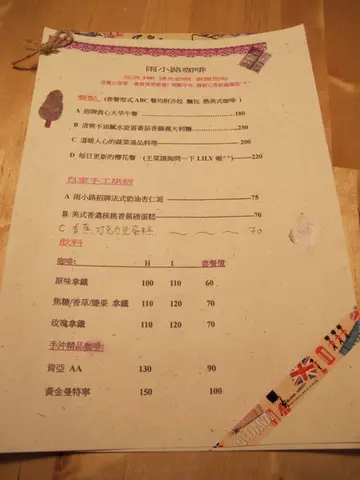 雨小路咖啡
低消 100
餐點 (套餐型式 ABC 餐均附沙拉 麵包 熱美式咖啡)
A 招牌貪心大早午餐 180
B 清爽不油膩水波蛋蕃茄香腸義大利麵 250
C 溫暖人心的蔬菜湯品料理 200
D 每日更新的櫻花餐 (主菜請詢問一下 LILY 喔^^) 220
自家手工烘焙
A 雨小路招牌法式奶油杏仁派 75
B 美式香濃核桃香蕉磅蛋糕 70
C 香蕉巧克力豆蛋糕 ~ ~ ~ 70
飲料
咖啡: H I 套餐價
原味拿鐵 100 110 60
焦糖/香草/榛果 拿鐵 110 120 70
玫瑰拿鐵 110 120 70
手沖精品咖啡:
肯亞 AA 130 90
黃金曼特寧 150 100